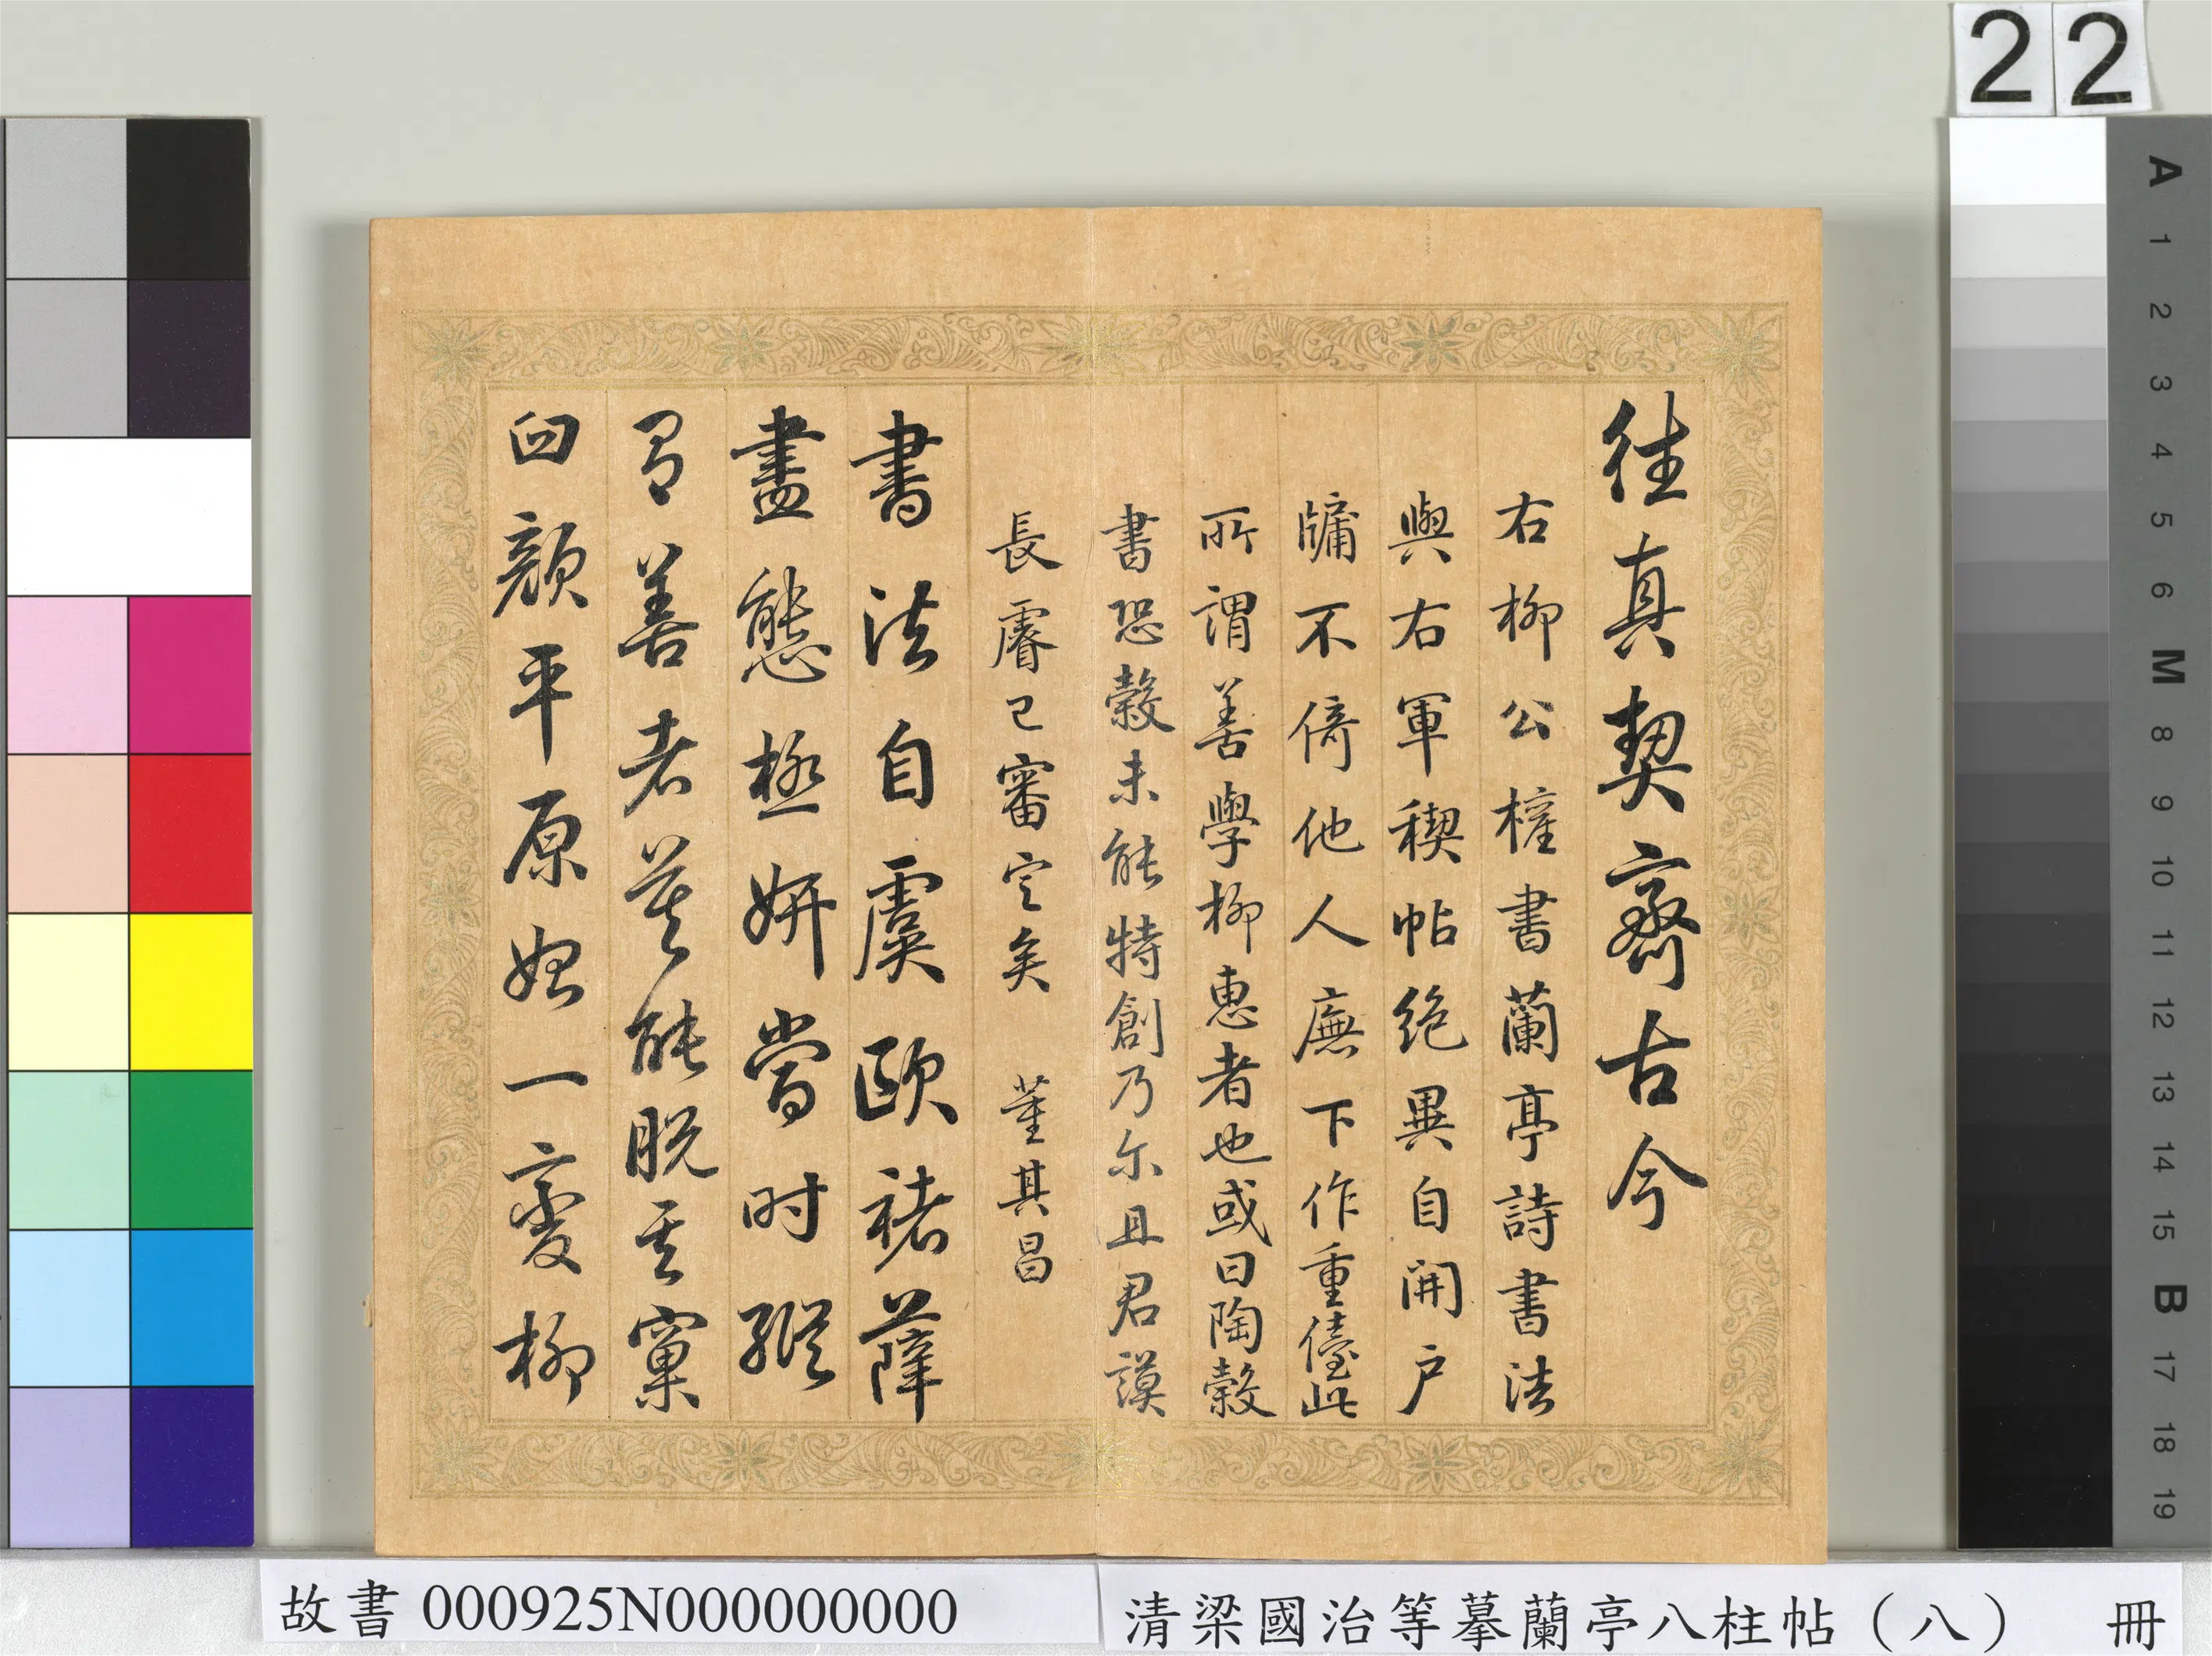 往真契齋古今
右柳公權書蘭亭詩書法
與右軍稧帖絕異自開戶
牖不倚他人廡下作重儓此
所謂善學柳惠者也或曰陶穀
書恐穀未能特創乃尔且君謨
長睿已審定矣 董其昌
書法自虞歐褚薛
盡態極妍當时縱
有善者莫能脫其窠
臼顏平原始一變柳
22
A 1 2 3 4 5 6 M 8 9 10 11 12 13 14 15 B 17 18 19
故書 000925N000000000
清梁國治等摹蘭亭八柱帖（八） 冊